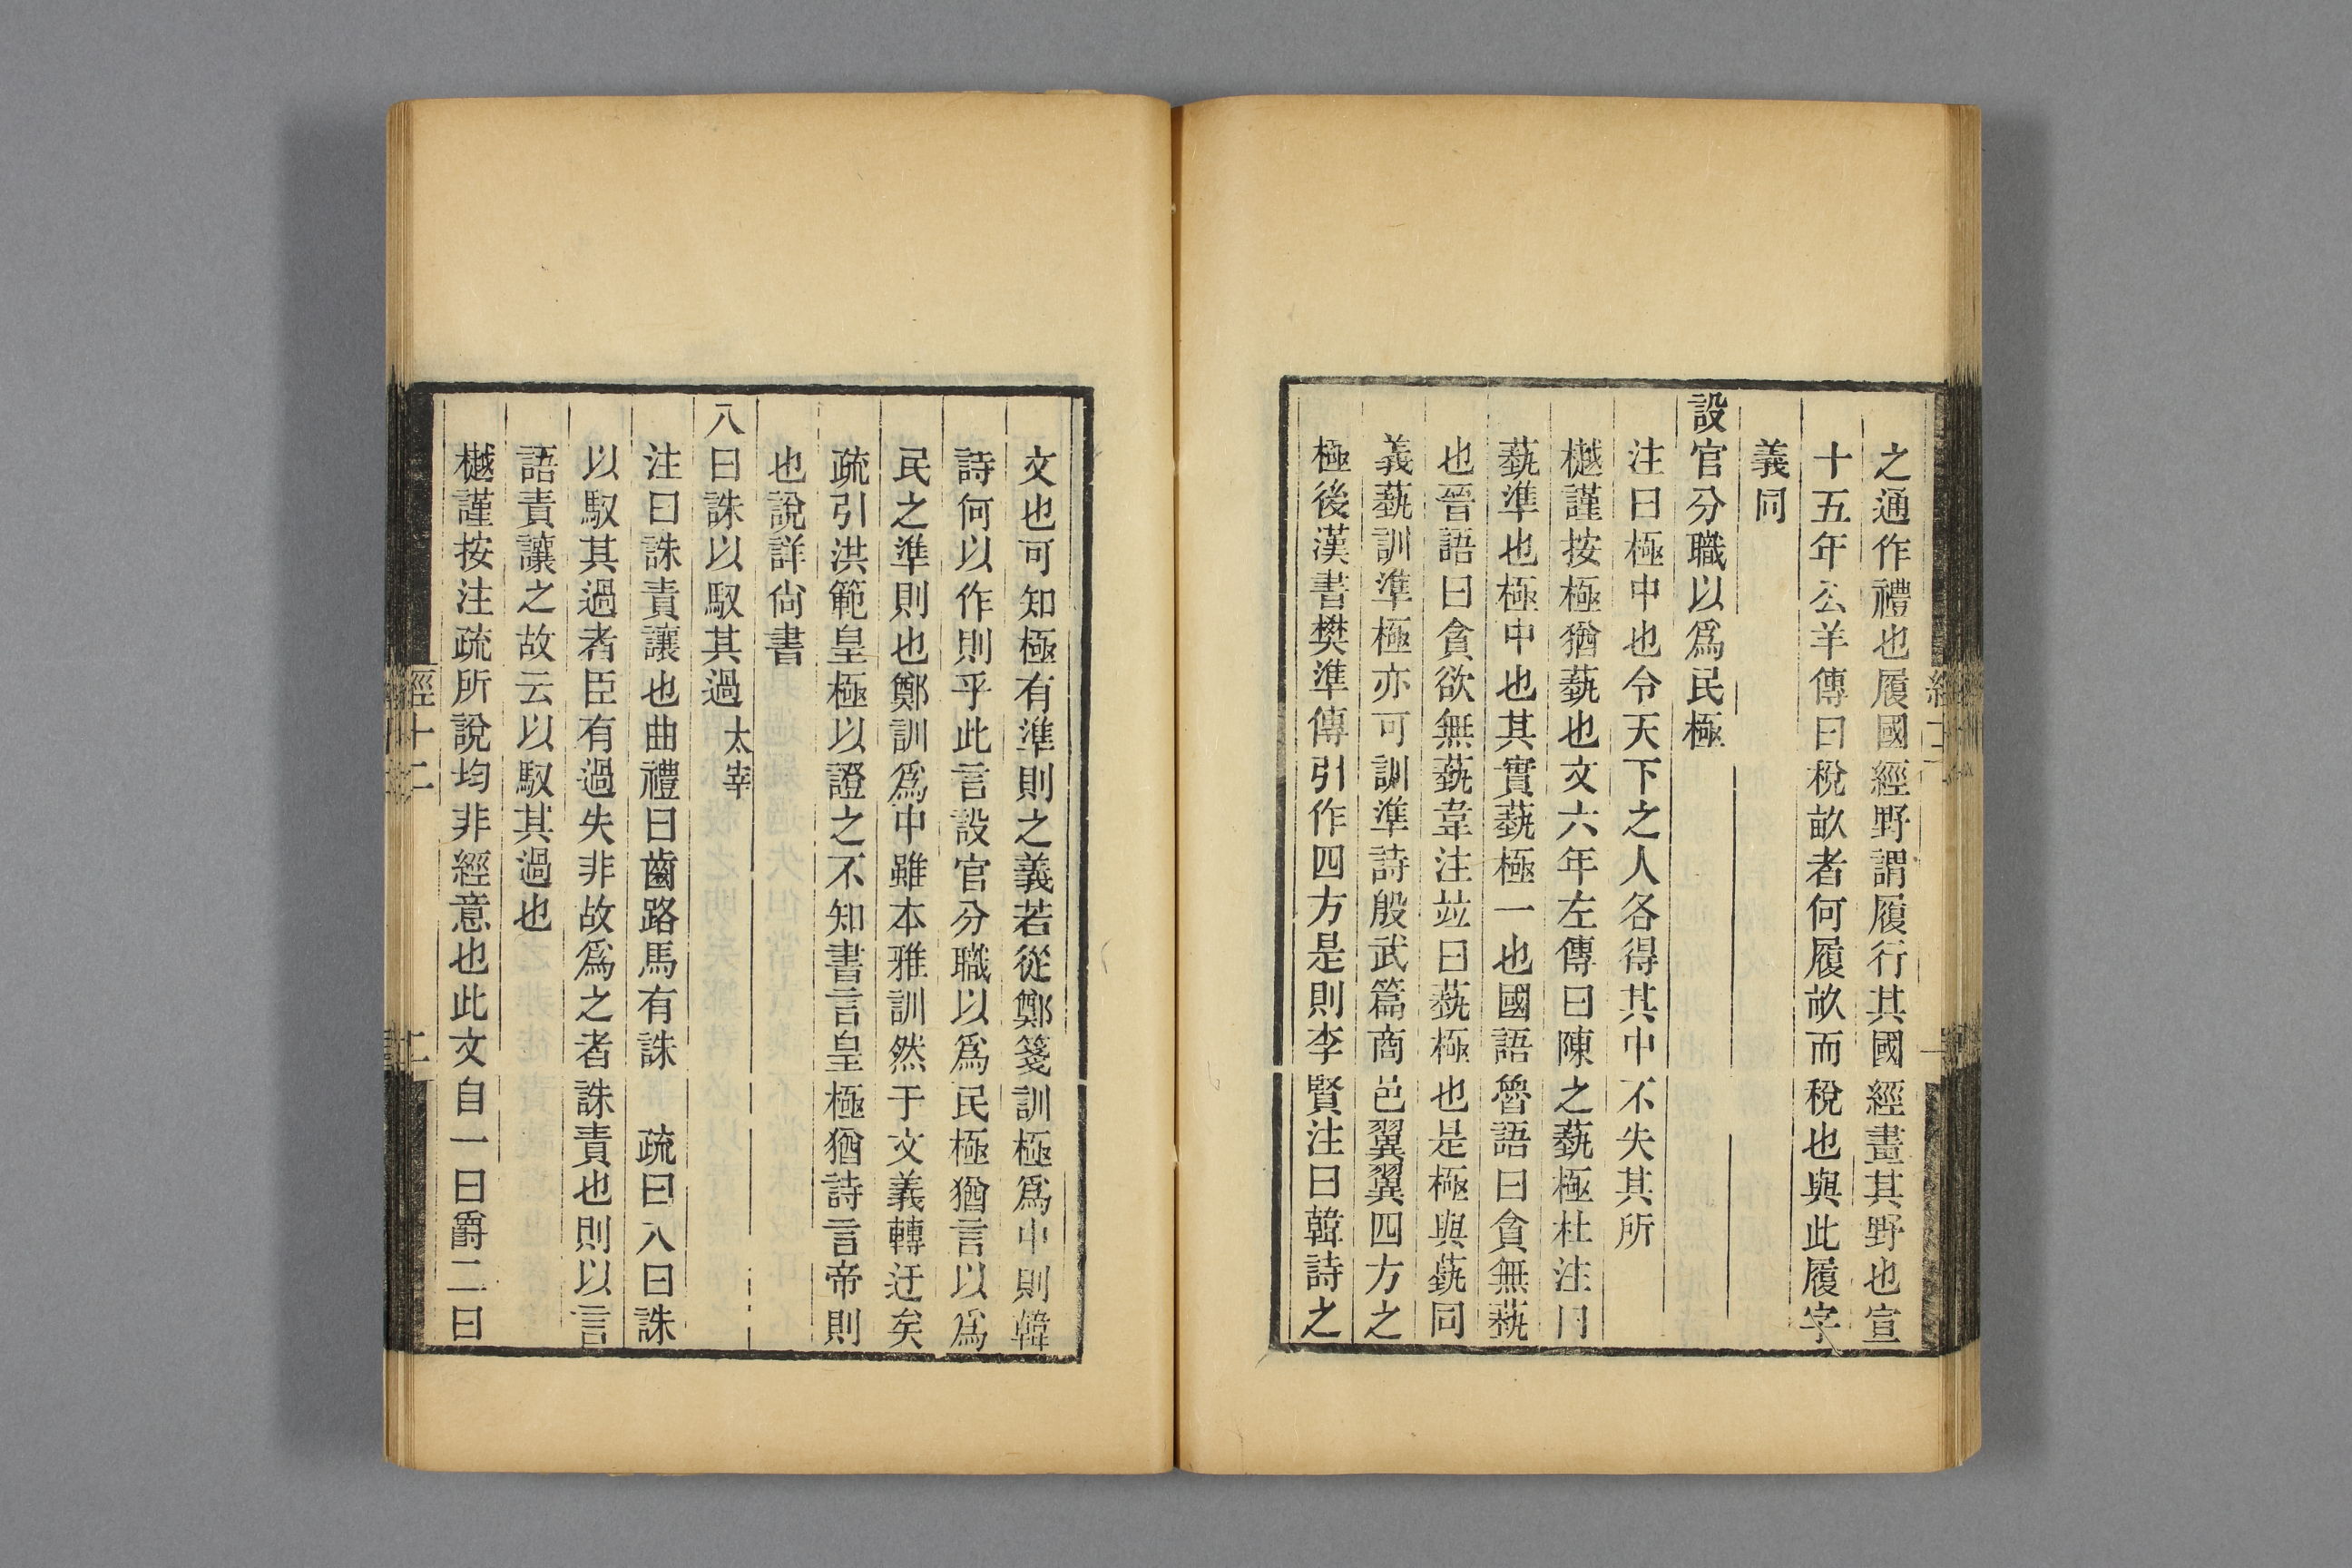 之通作禮也履國經野謂履行其國經畫其野也宣
十五年公羊傳曰稅畝者何履畝而稅也與此履字
義同
設官分職以爲民極
注曰極中也令天下之人各得其中不失其所
樾謹按極猶蓺也文六年左傳曰陳之蓺極杜注曰
蓺準也極中也其實蓺極一也國語魯語曰貪無蓺
也晉語曰貪欲無蓺韋注竝曰蓺極也是極與蓺同
義蓺訓準極亦可訓準詩殷武篇商邑翼翼四方之
極後漢書樊準傳引作四方是則李賢注曰韓詩之
文也可知極有準則之義若從鄭箋訓極爲中則韓
詩何以作則乎此言設官分職以爲民極猶言以爲
民之準則也鄭訓爲中雖本雅訓然于文義轉迂矣
疏引洪範皇極以證之不知書言皇極猶詩言帝則
也說詳尙書
八曰誅以馭其過 太宰
注曰誅責讓也曲禮曰齒路馬有誅 疏曰八曰誅
以馭其過者臣有過失非故爲之者誅責也則以言
語責讓之故云以馭其過也
樾謹按注疏所說均非經意也此文自一曰爵二曰
經十二
二